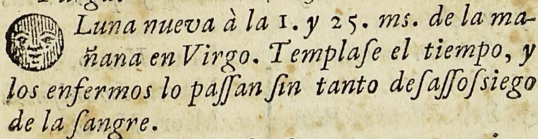 Luna nueva à la 1. y 25. ms. de la ma-
ñana en Virgo. Templaſe el tiempo, y
los enfermos lo paſſan ſin tanto deſaſſoſsiego
de la ſangre.